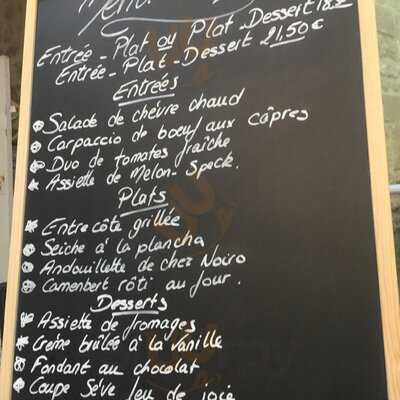 Entrée - Plat ou Plat - Dessert 18€
Entrée - Plat - Dessert 21,50€
Entrées
Salade de chèvre chaud
Carpaccio de boeuf aux câpres
Duo de tomates fraîche
Assiette de Melon - Speck.
Plats
Entre côte grillée
Seiche à la plancha
Andouillette de chez Noiro
Camembert rôti au jour.
Desserts
Assiette de fromages
Crème brûlée à la vanille
Fondant au chocolat
Coupe Sève